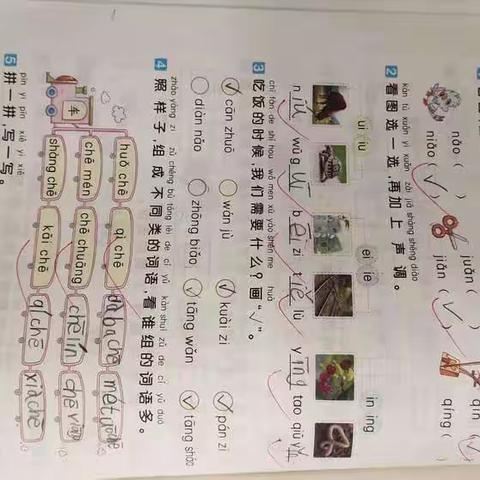 nǎo ( juǎn ( qíng (
niǎo ( √ ) jiǎn ( √ )
kàn tú xuǎn yi xuǎn zài jiā shàng shēng diào
2 看图选一选,再加上声调。
ui iu ei ie in ing
wūg uī b ēi zi t iě lù y īng tao qiū
chī fàn de shí hou wǒ men xū yào shén me huà
3 吃饭的时候,我们需要什么?画“√”。
√ cān zhuō wán jù √ kuài zi √ pán zi
diàn nǎo zhōng biǎo √ tāng wǎn √ tāng sháo
zhào yàng zi zǔ chéng bù tóng lèi de cí yǔ kàn shuí zǔ de cí yǔ duō
4 照样子,组成不同类的词语,看谁组的词语多。
huǒ chē qì chē
车 chē mén chē chuāng
shàng chē kāi chē xià chē
pīn yi pīn xiě yi xiě
5 拼一拼,写一写。